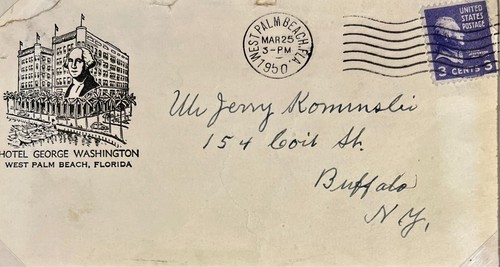 WEST PALM BEACH, FLA.
MAR 25
3-PM
1950
UNITED STATES
POSTAGE
3 CENTS 3
HOTEL GEORGE WASHINGTON
WEST PALM BEACH, FLORIDA
Mr Jerry Kominski
154 Coit St.
Buffalo
N.Y.